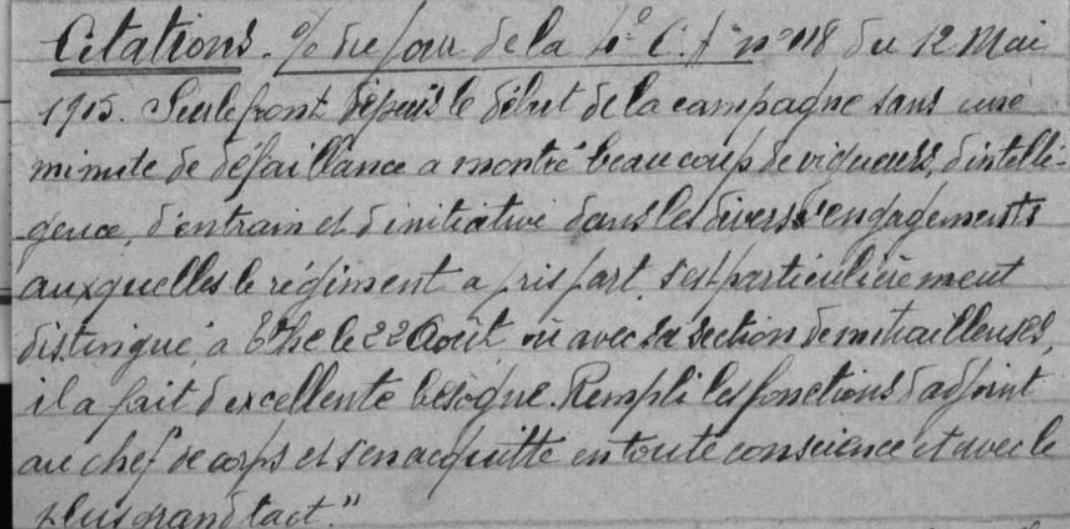 Citations. % du jour de la 4e C.A n° 118 du 12 Mai
1915. Sur le front depuis le début de la campagne sans une
minute de défaillance a montré beaucoup de vigueurs, d'intelli-
gence, d'entrain et d'initiative dans les divers engagements
auxquelles le régiment a pris part s'est particulièrement
distingué à Ethe le 22 Août où avec sa section de mitrailleuses,
il a fait d'excellente besogne. Rempli les fonctions d'adjoint
au chef de corps et s'en acquitte en toute conscience et avec le
plus grand tact."